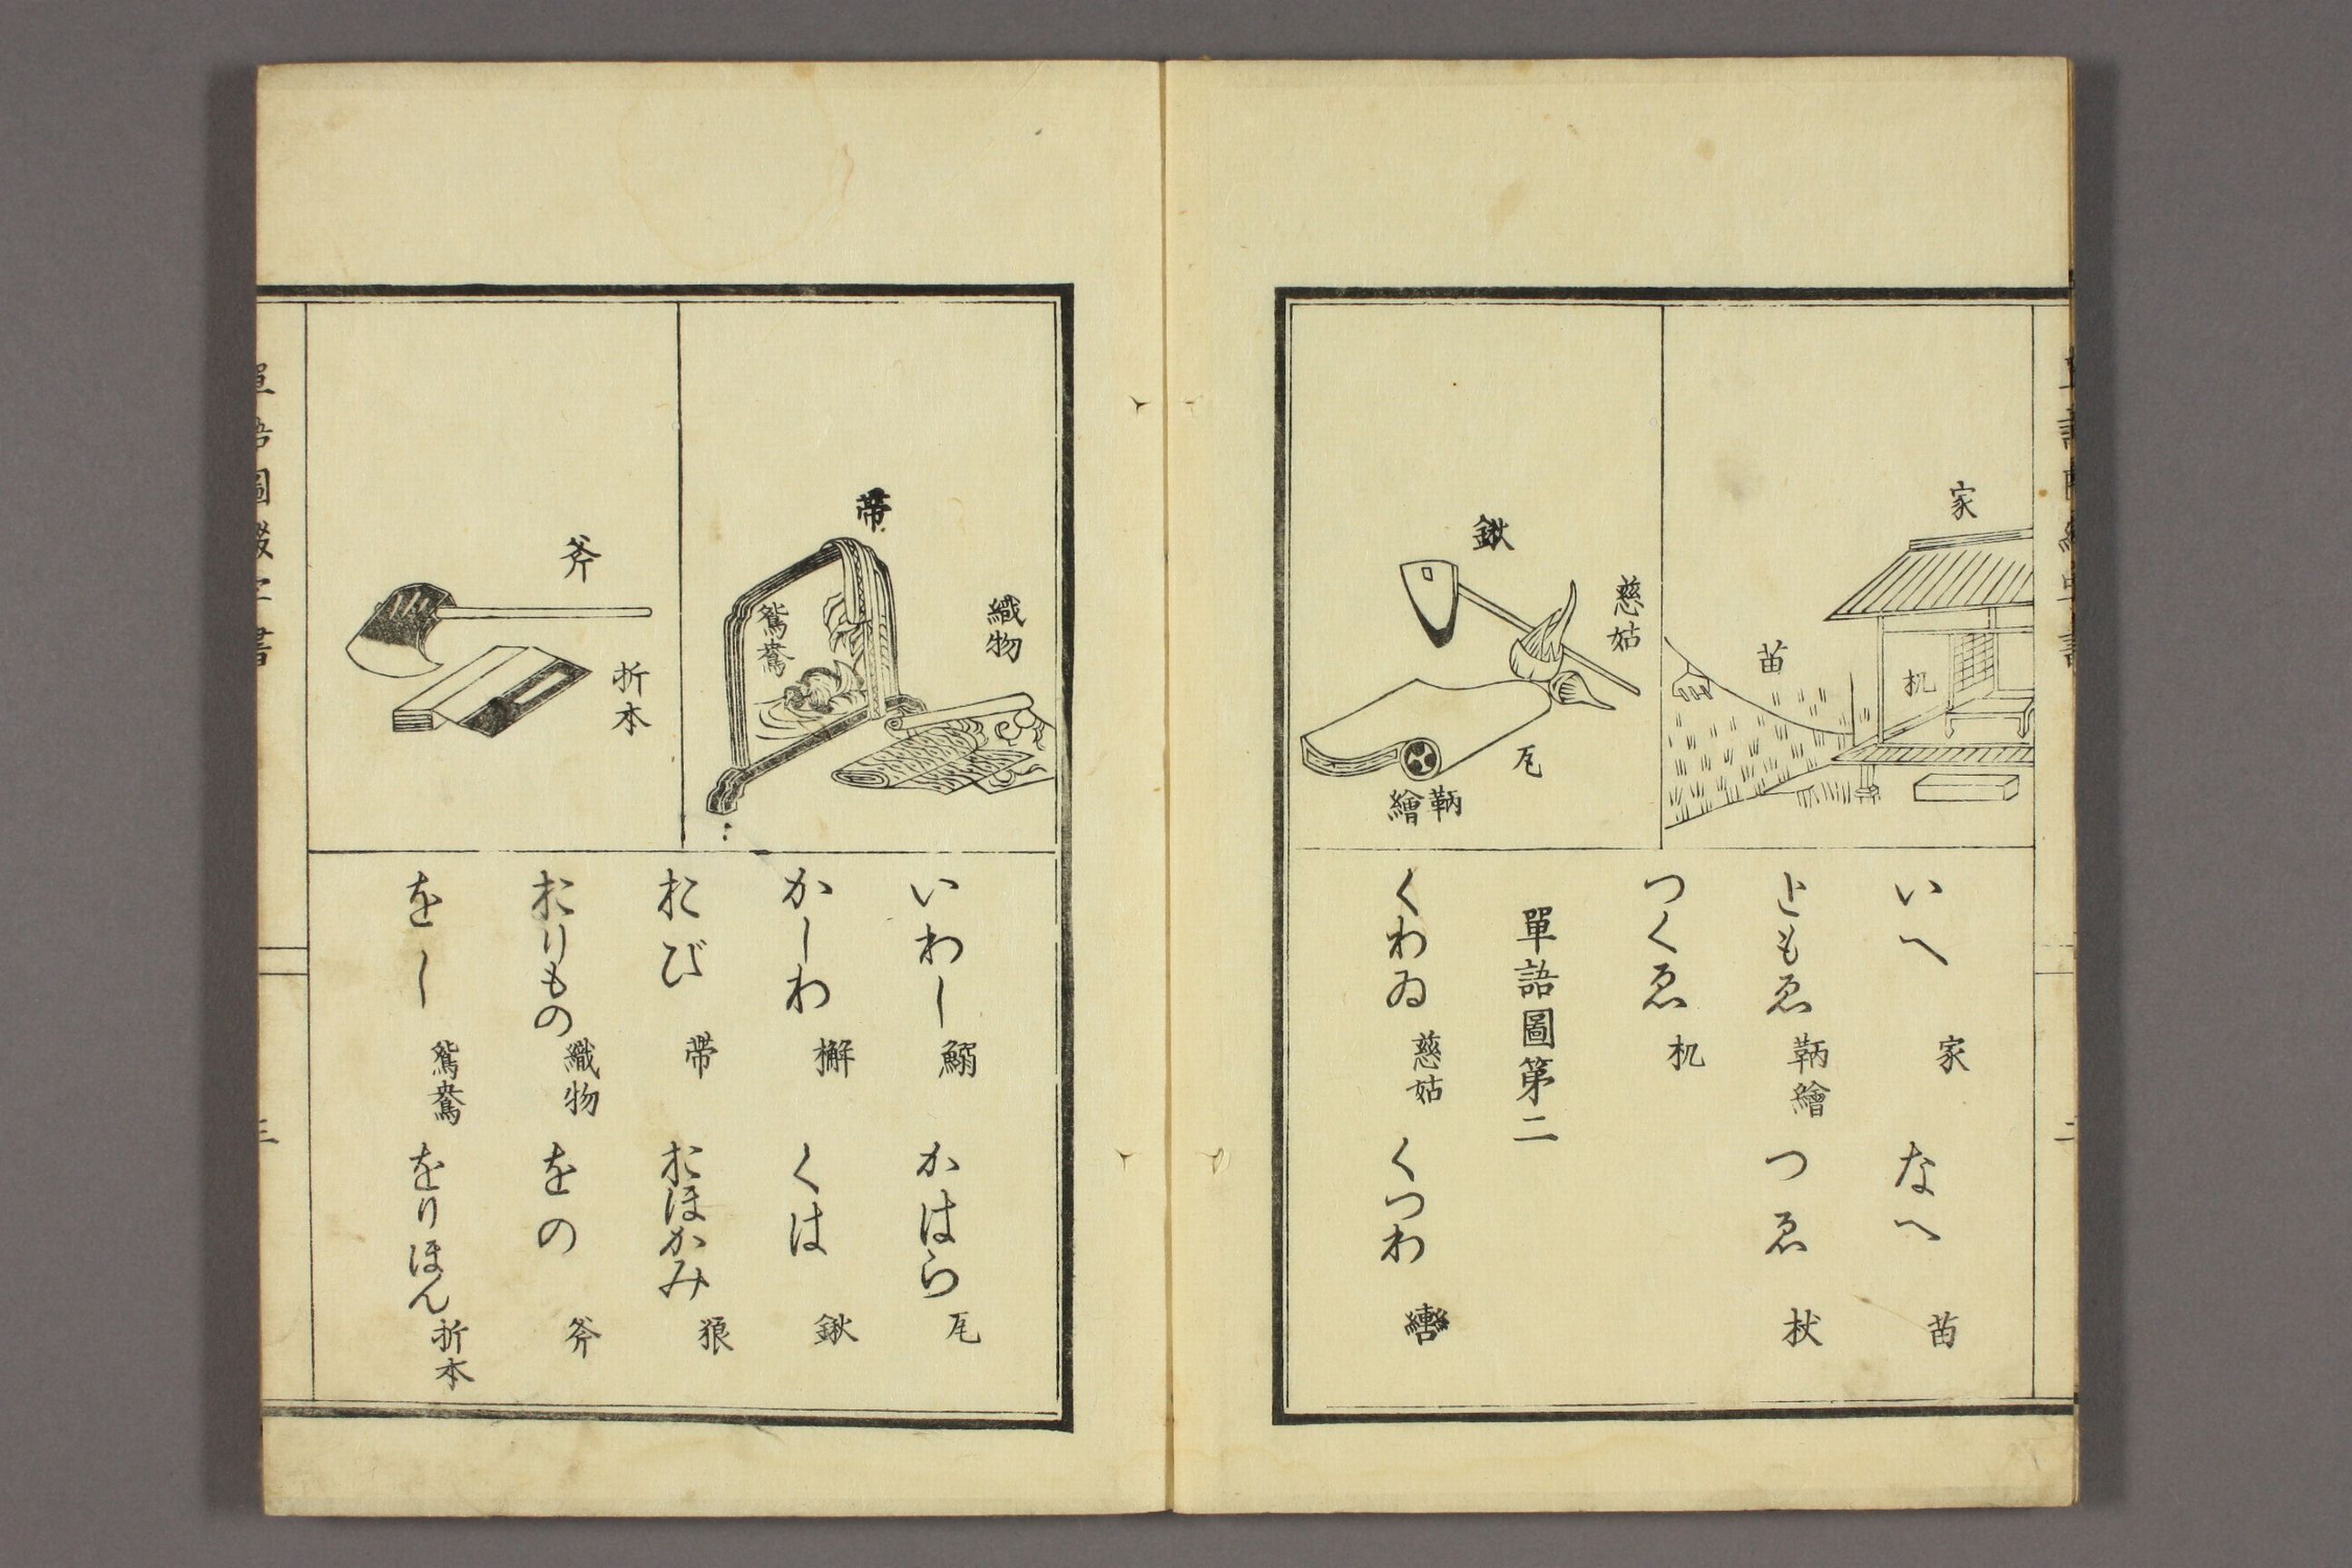 家
苗
机
慈姑
鍬
瓦
鞆
繪
いへ 家 なへ 苗
ともゑ 鞆繪 つゑ 杖
つくゑ 机
單語圖第二
くわゐ 慈姑 くつわ 轡
織物
帶
鴛鴦
斧
折本
いわし 鰯 かはら 瓦
かしわ 檞 くは 鍬
おび 帶 おほかみ 狼
おりもの 織物 をの 斧
をし 鴛鴦 をりほん 折本
三